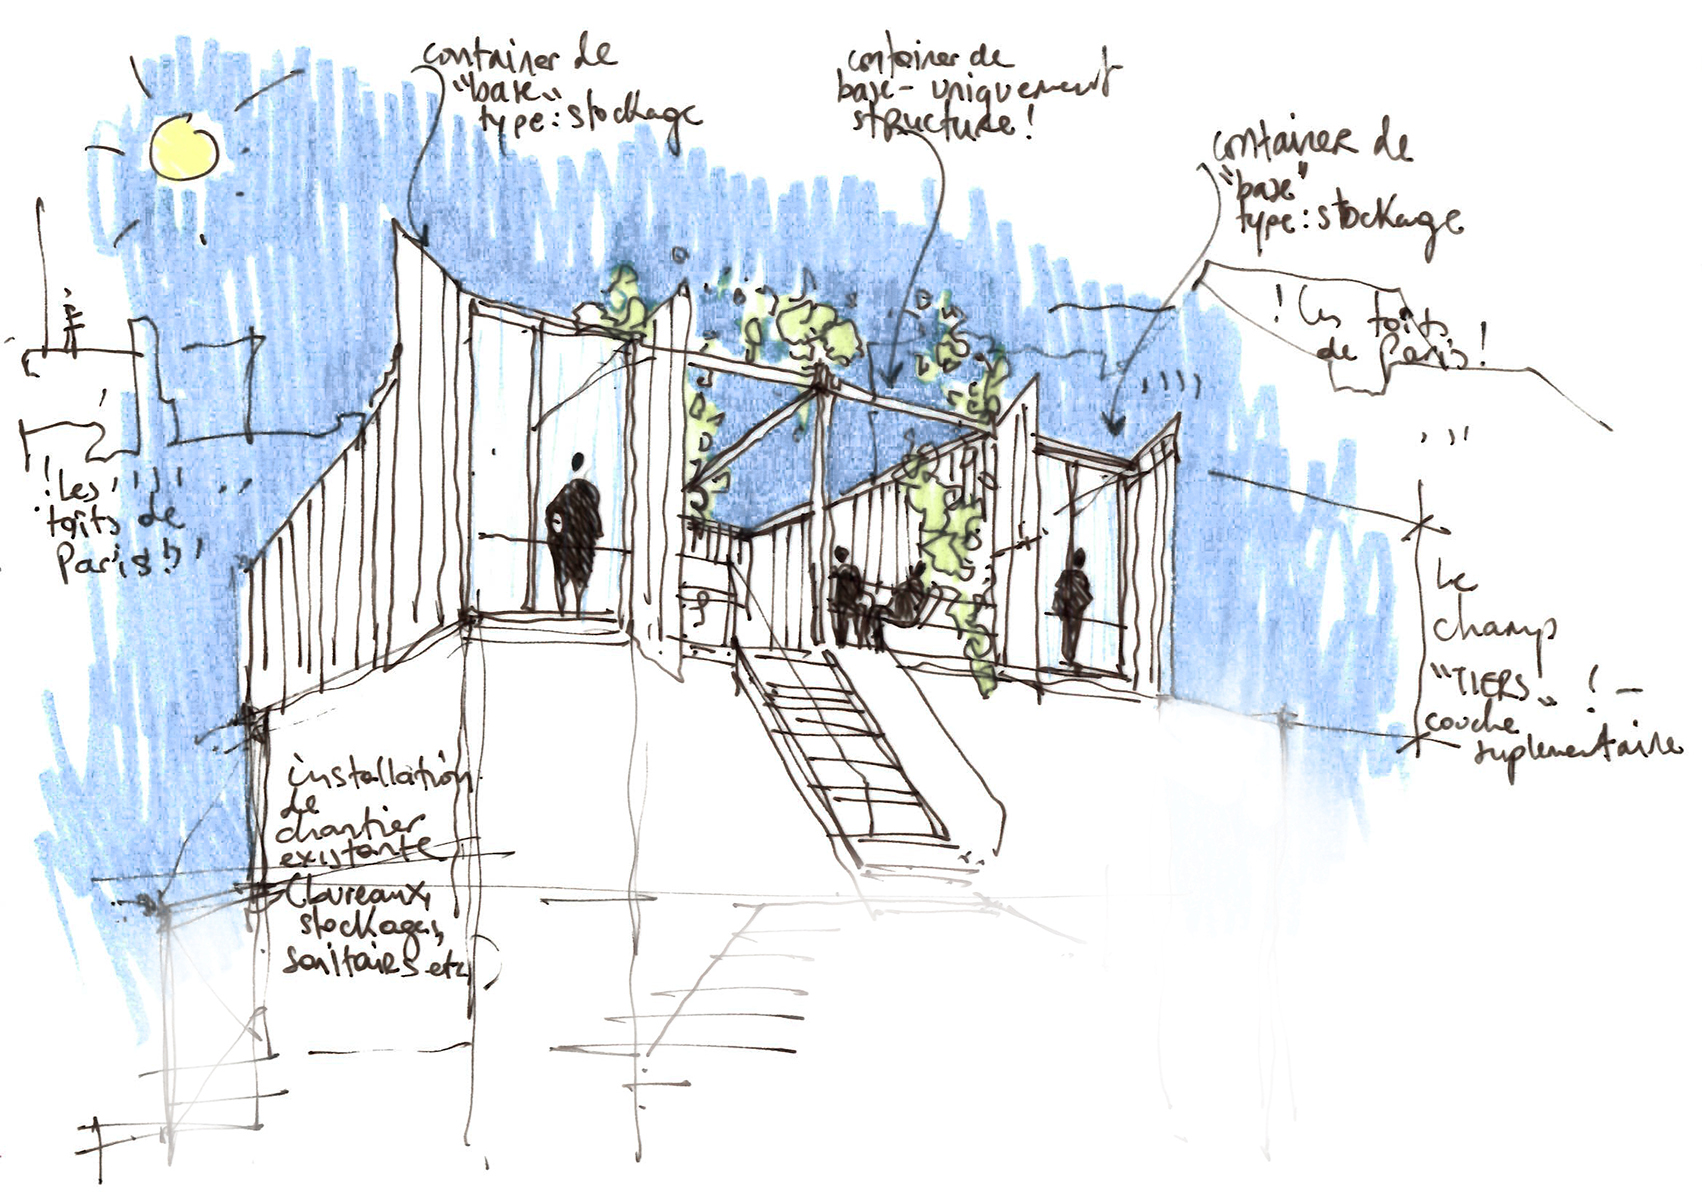 container de
"base"
type: stockage
container de
base - uniquement
structure!
container de
"base"
type: stockage
! Les toits
de Paris!
! Les
toits de
Paris!!
Le
champ
"TIERS" ! -
couche
suplementaire
installation
de
chantier
existante
(bureaux,
stockages,
sanitaires etc)